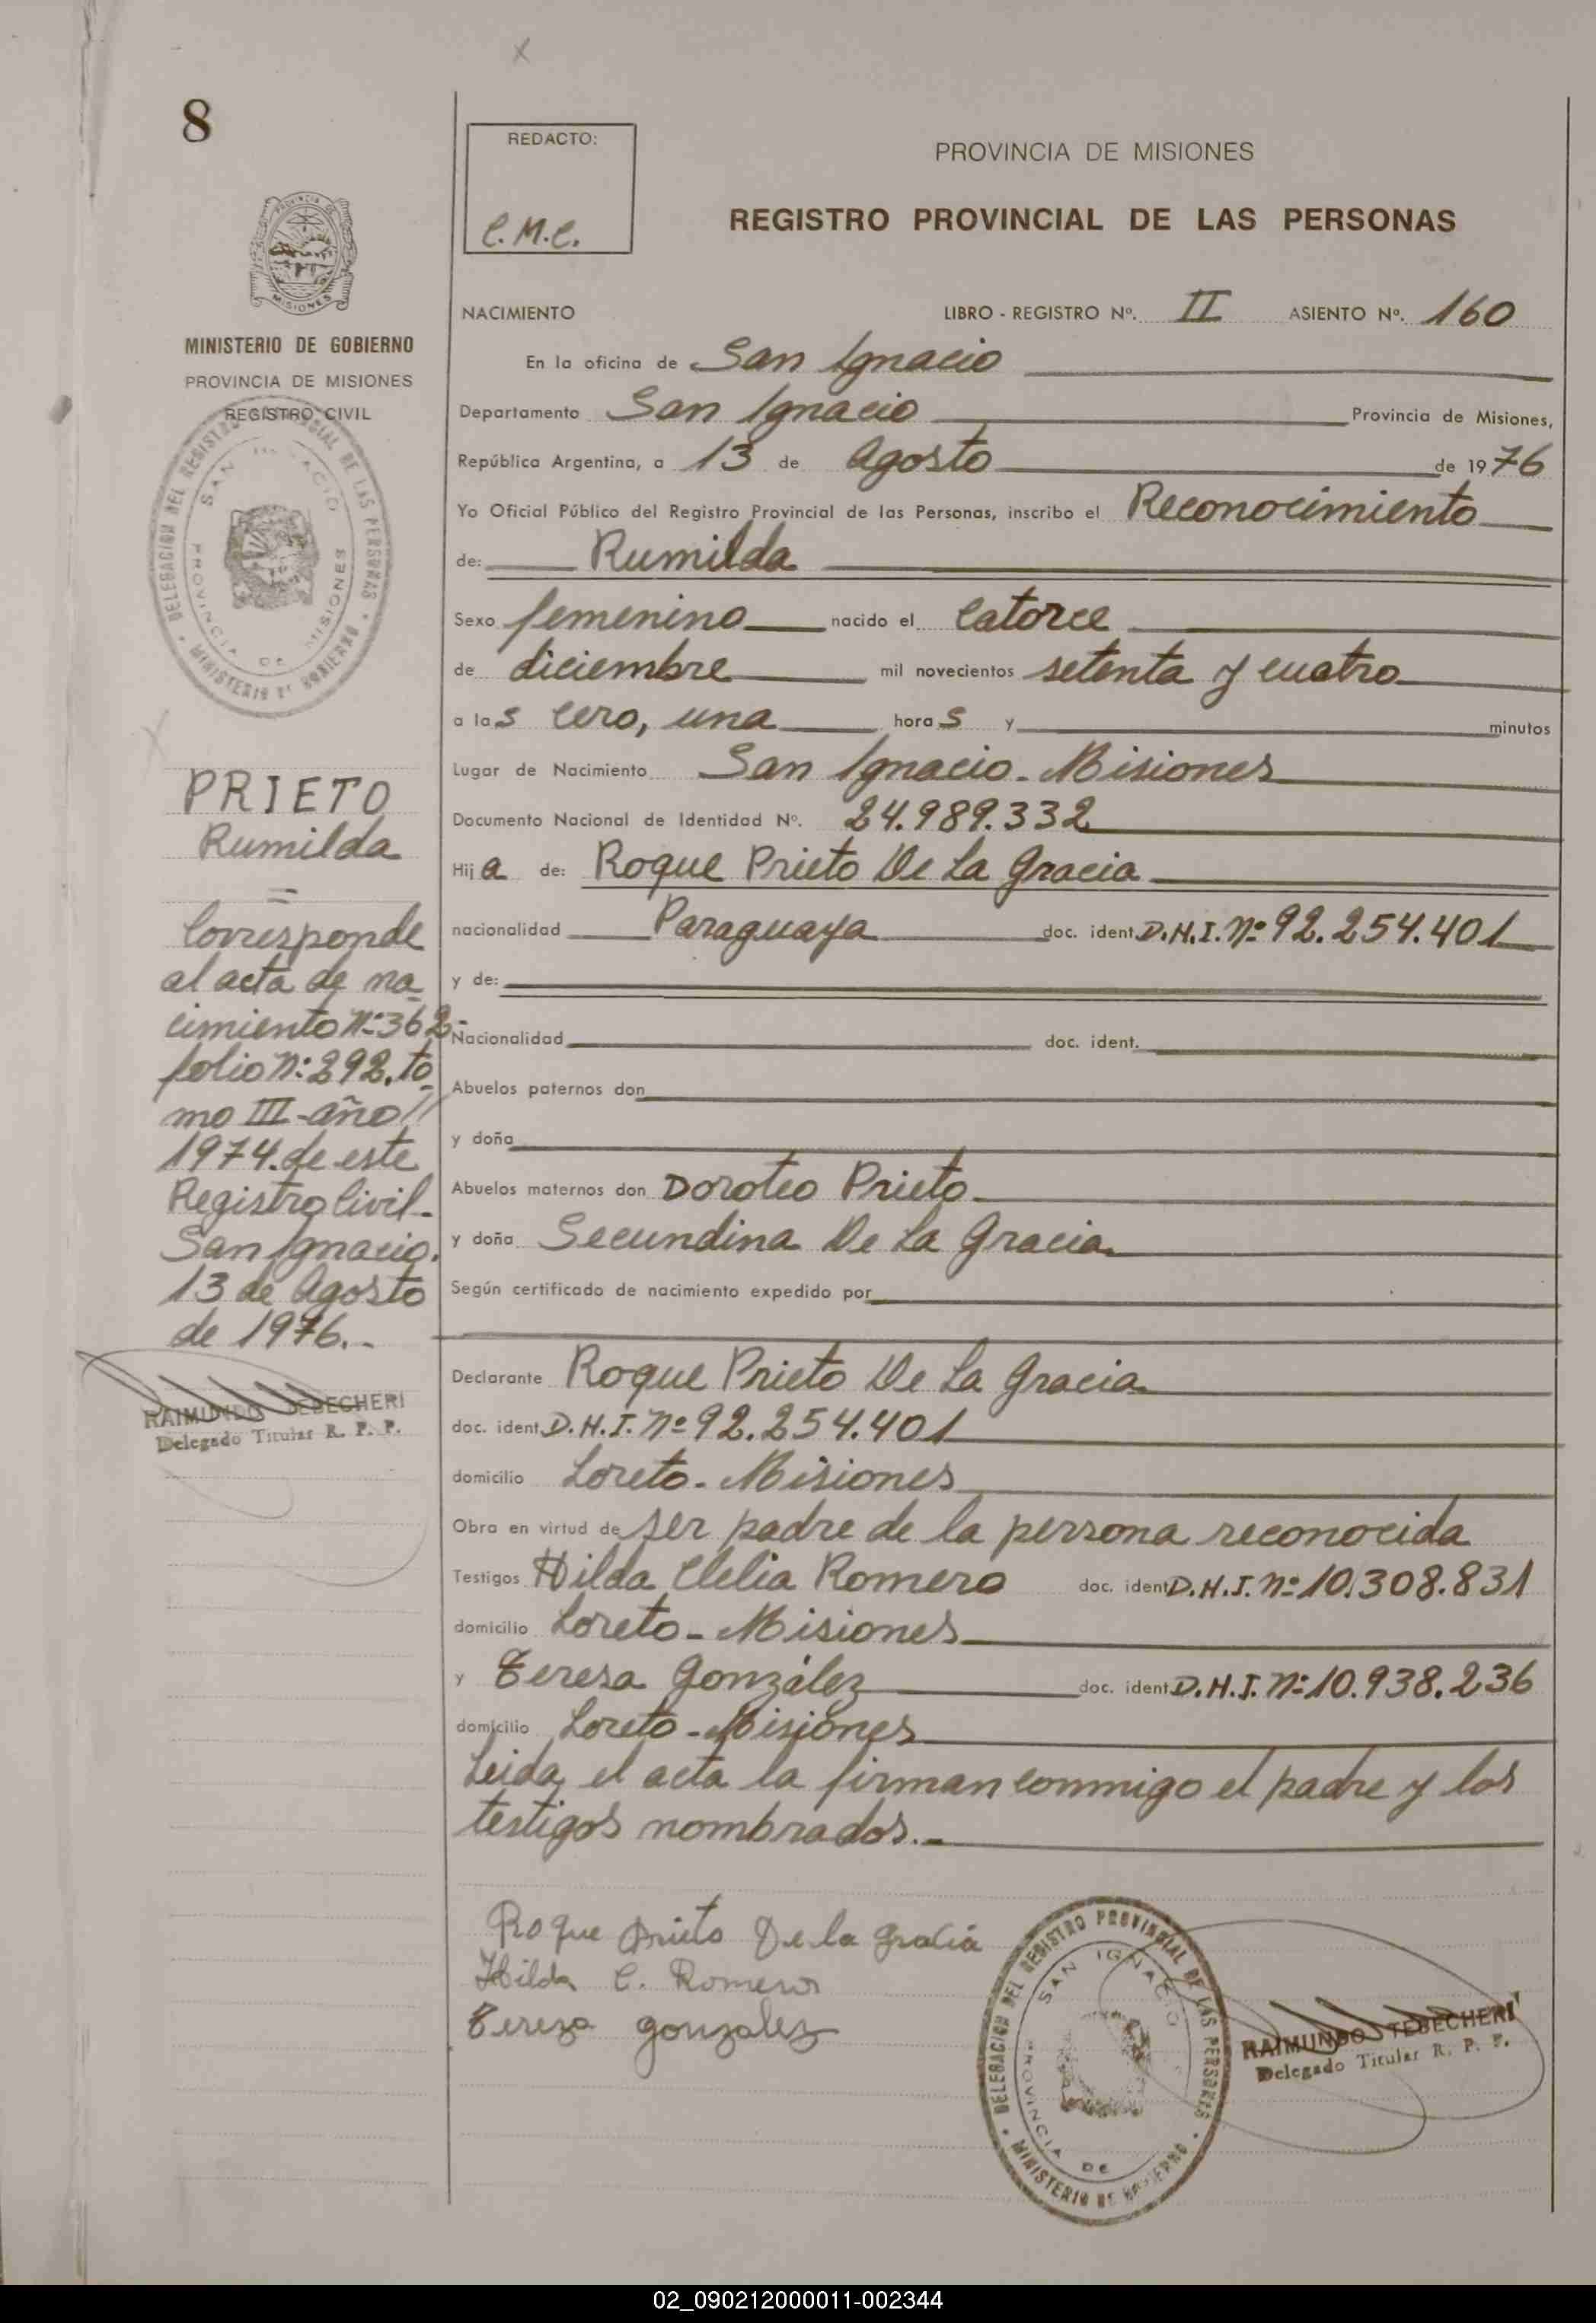 8
REDACTO:
C.M.C.
PROVINCIA DE MISIONES
REGISTRO PROVINCIAL DE LAS PERSONAS
PROVINCIA DE
MISIONES
MINISTERIO DE GOBIERNO
PROVINCIA DE MISIONES
REGISTRO CIVIL
DELEGACION DEL REGISTRO PROVINCIAL DE LAS PERSONAS
SAN IGNACIO
PROVINCIA DE MISIONES
MINISTERIO DE GOBIERNO
PRIETO
Rumilda
=
Corresponde
al acta de na_
cimiento Nº:362-
folio nº:292, to_
mo III-año//
1974. de este
Registro Civil-
San Ignacio,
13 de Agosto
de 1976.-
RAIMUNDO TEBECHERI
Delegado Titular R. P. P.
NACIMIENTO LIBRO - REGISTRO Nº. II ASIENTO Nº. 160
En la oficina de San Ignacio
Departamento San Ignacio Provincia de Misiones,
República Argentina, a 13 de Agosto de 1976
Yo Oficial Público del Registro Provincial de las Personas, inscribo el Reconocimiento
de: Rumilda
Sexo femenino nacido el Catorce
de diciembre mil novecientos setenta y cuatro
a las cero, una horas y minutos
Lugar de Nacimiento San Ignacio - Misiones
Documento Nacional de Identidad Nº. 24.989.332
Hija de: Roque Prieto De La Gracia
nacionalidad Paraguaya doc. ident. D.N.I. Nº 92.254.401
y de:
Nacionalidad doc. ident.
Abuelos paternos don
y doña
Abuelos maternos don Doroteo Prieto
y doña Secundina De La Gracia
Según certificado de nacimiento expedido por
Declarante Roque Prieto De La Gracia
doc. ident. D.N.I. Nº 92.254.401
domicilio Loreto - Misiones
Obra en virtud de ser padre de la persona reconocida
Testigos Hilda Clelia Romero doc. ident. D.N.I. Nº 10.308.831
domicilio Loreto - Misiones
y Teresa González doc. ident. D.N.I. Nº 10.938.236
domicilio Loreto - Misiones
Leida el acta la firman conmigo el padre y los
testigos nombrados.-
Roque Prieto De la gracia
Hilda C. Romero
Tereza gonzalez
DELEGACION DEL REGISTRO PROVINCIAL DE LAS PERSONAS
SAN IGNACIO
PROVINCIA DE
MINISTERIO DE GOBIERNO
RAIMUNDO TEBECHERI
Delegado Titular R. P. P.
02_090212000011-002344